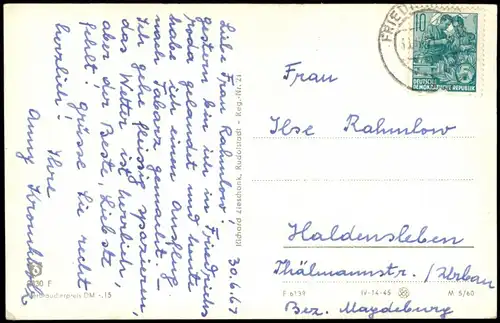 30.6.67
Liebe Frau Rahmlow!
Gestern bin ich in Friedrich-
roda gelandet und heute
habe ich einen Ausflug
nach Tabarz gemacht.
Ich gehe fleissig spazieren,
das Wetter ist herrlich,
aber der Beste, Liebste
fehlt! Grüsse Sie recht
herzlich! Ihre
Anny
Richard Zieschank, Rudolstadt - Reg.-Nr. 21
F
Verbraucherpreis DM -,15
FRIED
10
DEUTSCHE
DEMOKRATISCHE REPUBLIK
Frau
Ilse Rahmlow
Haldensleben
Thälmannstr. /
Bez. Magdeburg
F 6139 IV-14-45 M 5/60